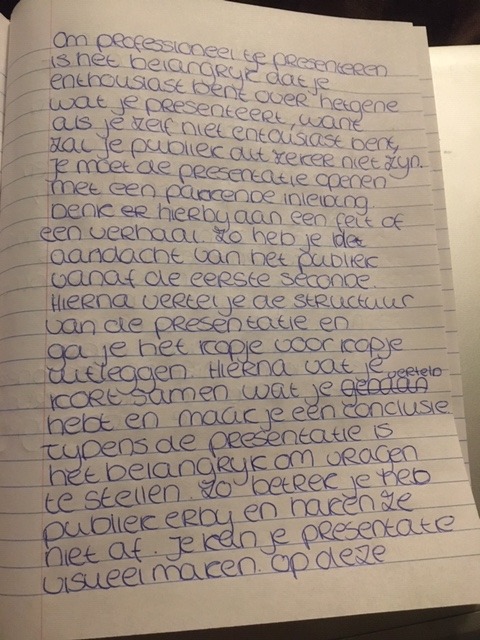 Om professioneel te presenteren
is het belangryk dat je
enthousiast bent over hetgene
wat je presenteert, want
als je zelf niet entousiast bent,
zal je publiek dit zeker niet zyn.
Je moet de presentatie openen
met een pakkende inleiding
Denk er hierby aan een feit of
een verhaal. Zo heb je de
aandacht van het publiek
vanaf de eerste seconde.
Hierna vertel je de structuur
van de presentatie en
ga je het kopje voor kopje
uitleggen. Hierna vat je
kort samen wat je gedaan verteld
hebt en maak je een conclusie
Typens de presentatie is
het belangryk om vragen
te stellen. Zo betrek je heb
publiek erby en haken ze
niet af. Je kan je presentatie
visueel maken. Op deze